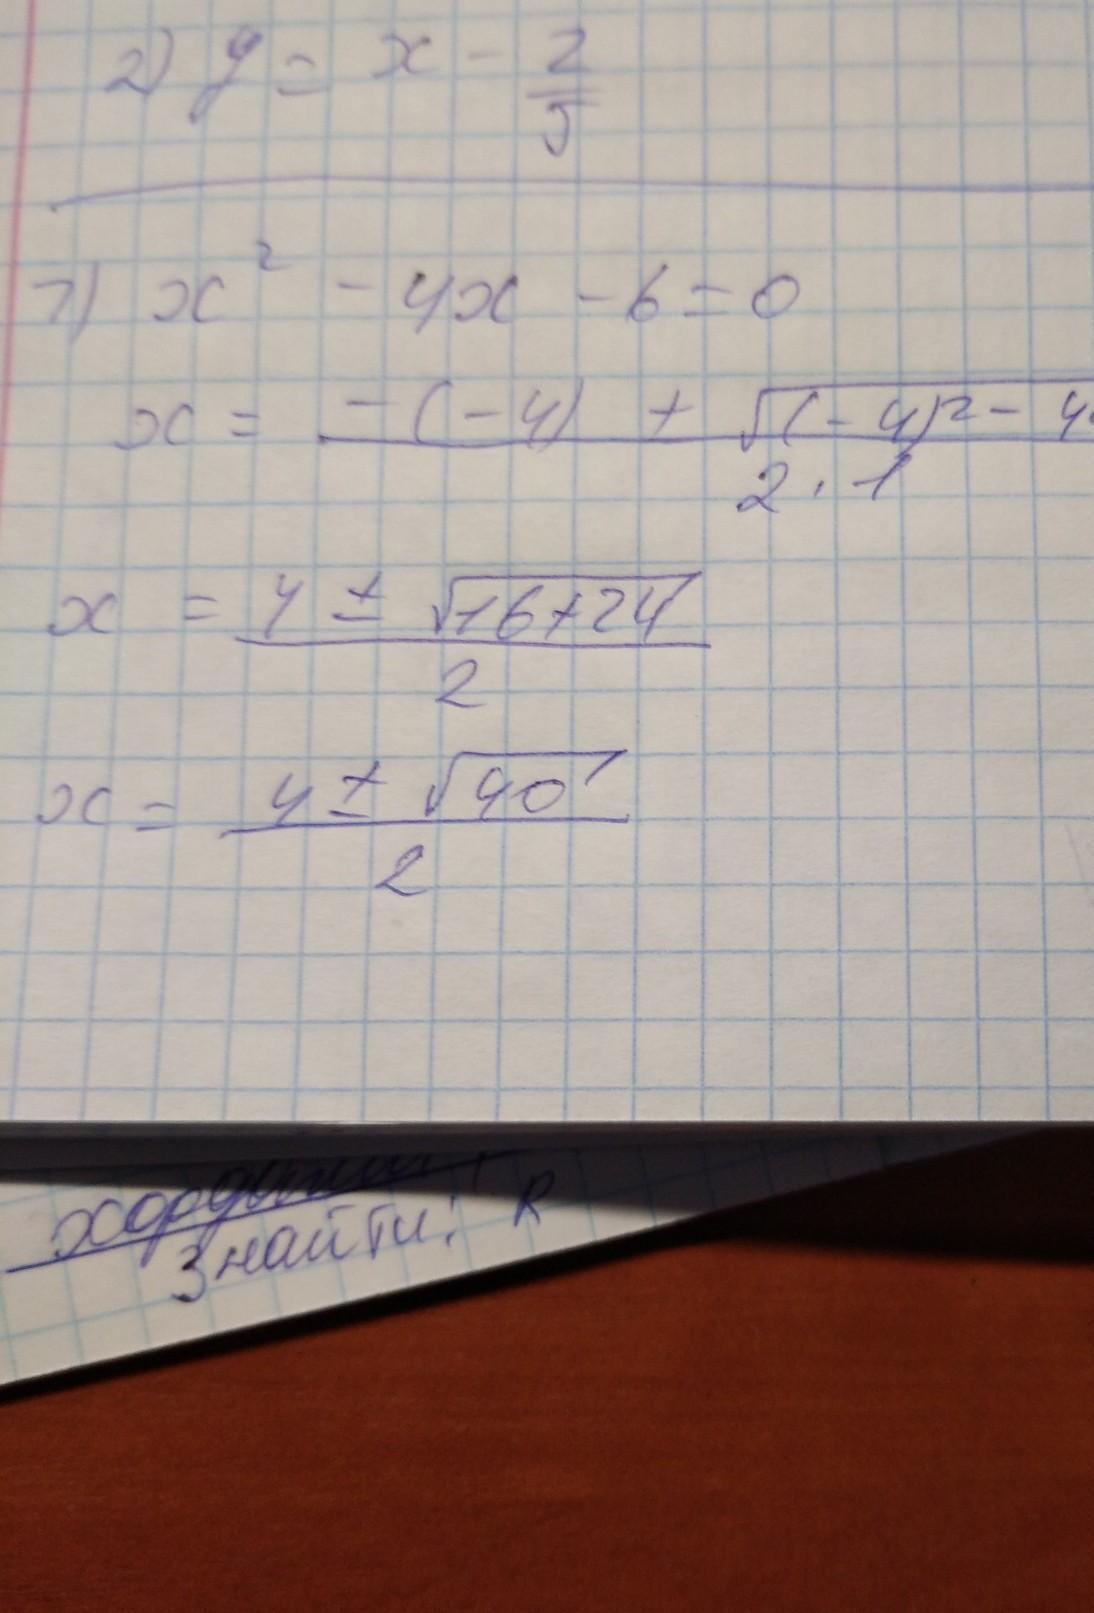 2) y = x - 2/5
7) x² - 4x - 6 = 0
x = -(-4) + √(-4)² - 4 / 2 · 1
x = 4 ± √16+24 / 2
x = 4 ± √40 / 2
знайти: R